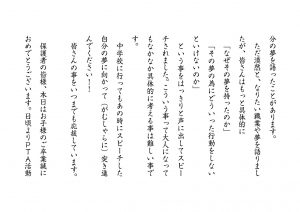 分の夢を語ったことがあります。
ただ漠然と、なりたい職業や夢を語りまし
たが、皆さんはもっと具体的に
「なぜその夢を持ったのか」
「その夢の為にどういった行動をしない
といけないのか」
という事をはっきりと声に出してスピー
チされました。こういう事って大人になって
もなかなか具体的に考える事は難しい事で
す。
中学校に行ってもあの時にスピーチした
自分の夢に向かって「がむしゃらに」突き進
んでください！！
皆さんの事をいつまでも応援しています。
保護者の皆様、本日はお子様のご卒業誠に
おめでとうございます。日頃よりＰＴＡ活動